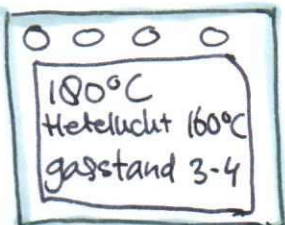 180°C
Hetelucht 160°C
gasstand 3-4